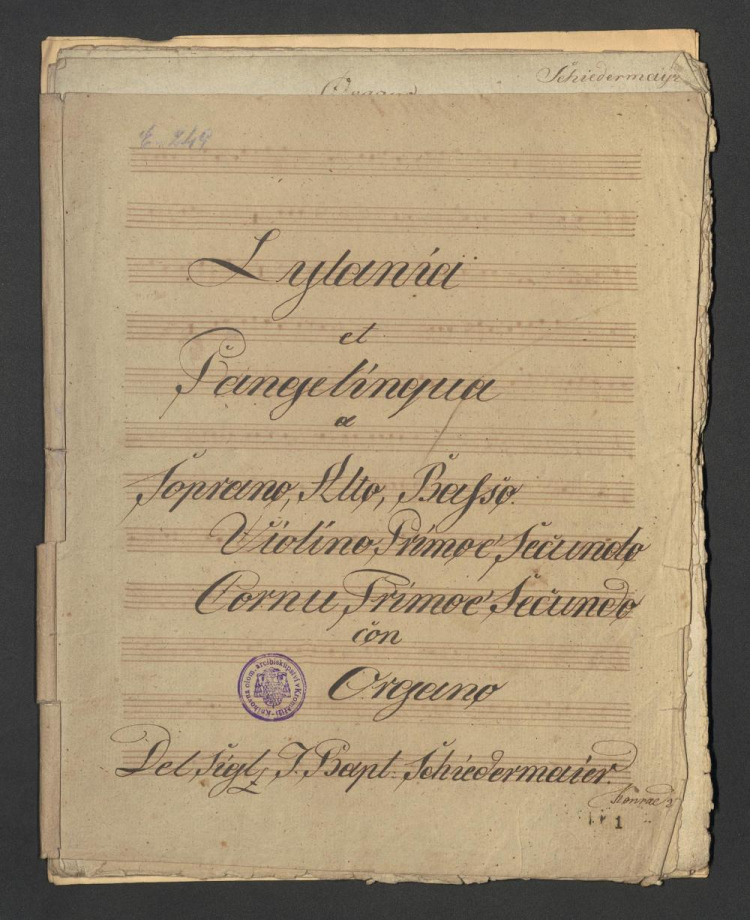 Schiedermayr
Organo
Lytania
et
Pangelingua
a
Soprano, Alto, Basso.
Violino Primo e Secundo
Cornu Primo e Secundo
con
Organo
Del Sigl. J. Bapt. Schiedermaier.
1